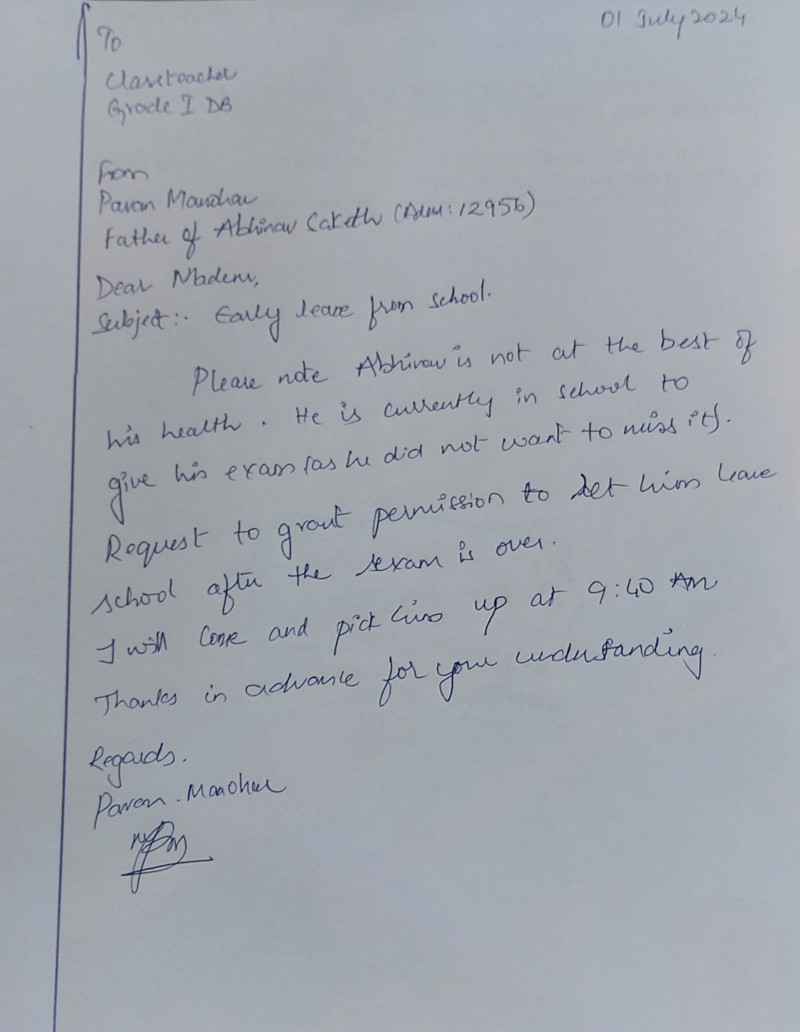 01 July 2024
To
Classteacher
Grade I DB
From
Pavan Manohar
Father of Abhinav Saketh (Adm: 12956)
Dear Madam,
Subject:- Early leave from school.
Please note Abhinav is not at the best of
his health. He is currently in school to
give his exam (as he did not want to miss it).
Request to grant permission to let him leave
school after the exam is over.
I will come and pick him up at 9:40 AM
Thanks in advance for your understanding.
Regards.
Pavan. Manohar